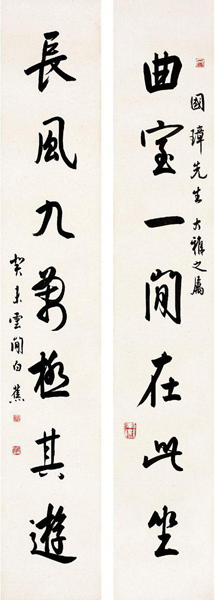 國璋先生大雅之屬
曲室一間在此坐
長風九萬極其遊
癸未雲間白蕉